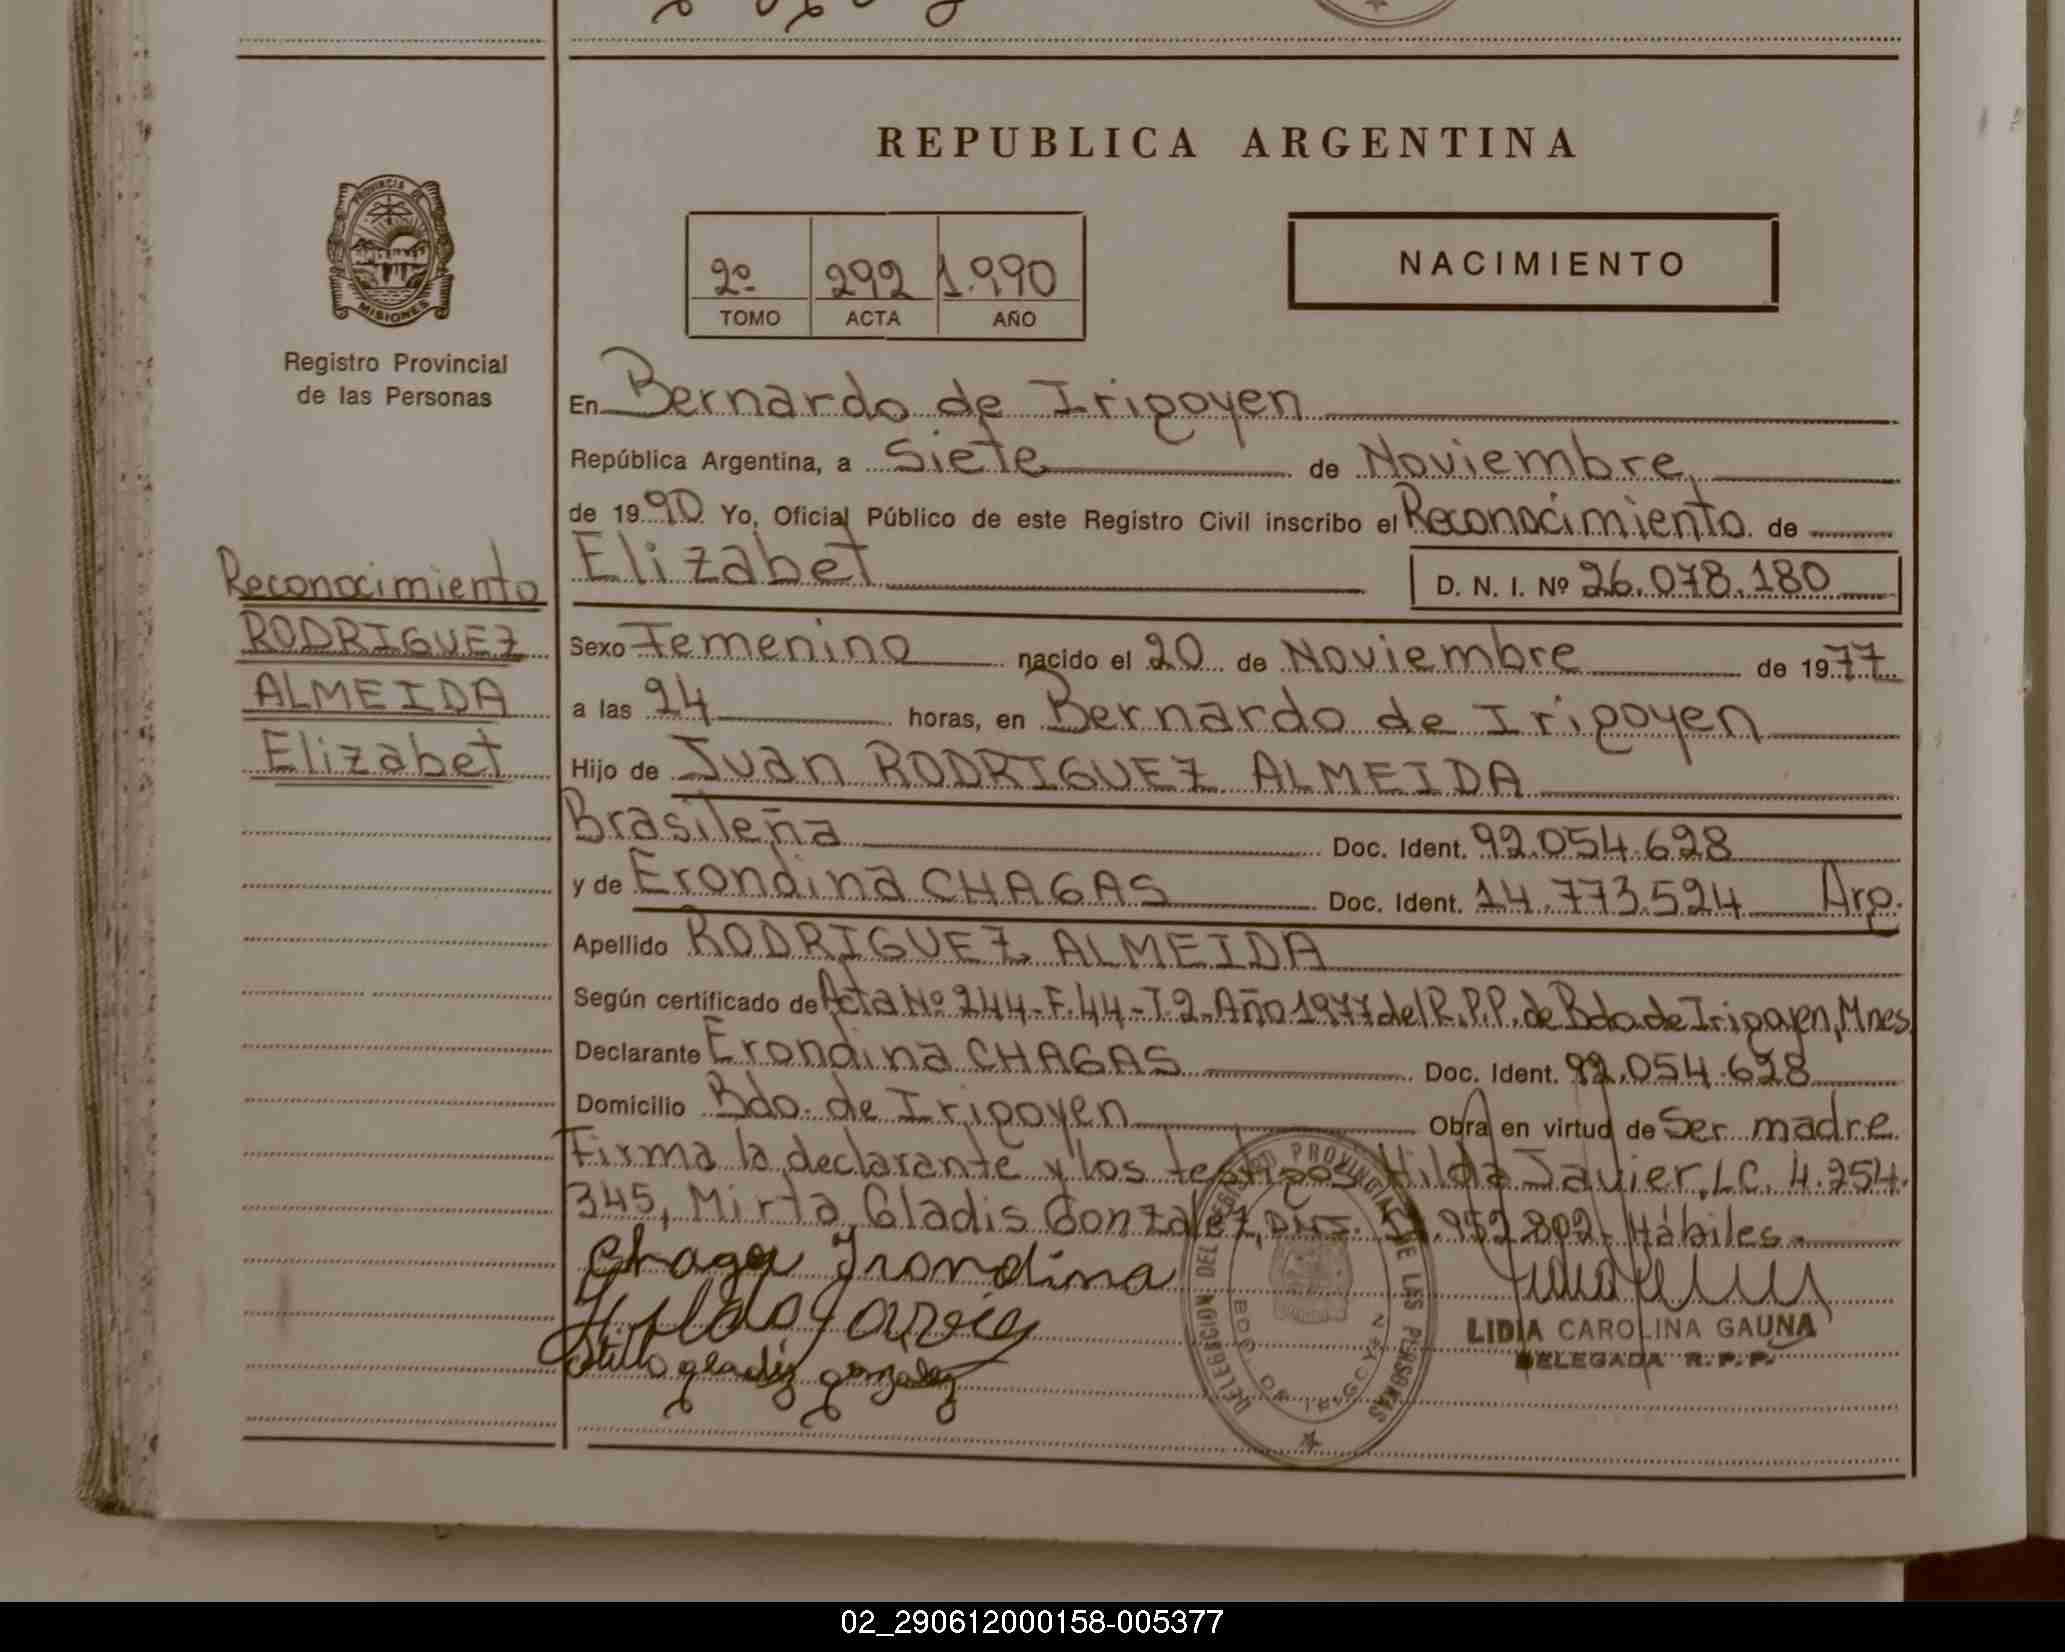 REPUBLICA ARGENTINA
PROVINCIA DE
MISIONES
Registro Provincial
de las Personas
2º 292 1.990
TOMO ACTA AÑO
NACIMIENTO
En Bernardo de Irigoyen
República Argentina, a Siete de Noviembre
de 1990 Yo, Oficial Público de este Registro Civil inscribo el Reconocimiento de
Elizabet D. N. I. Nº 26.078.180
Reconocimiento
RODRIGUEZ
ALMEIDA
Elizabet
Sexo Femenino nacido el 20 de Noviembre de 1977
a las 24 horas, en Bernardo de Irigoyen
Hijo de Juan RODRIGUEZ ALMEIDA
Brasileña Doc. Ident. 92.054.628
y de Erondina CHAGAS Doc. Ident. 14.773.524 Arg.
Apellido RODRIGUEZ ALMEIDA
Según certificado de Acta Nº 244-F.44-T.2-Año 1977 del R.P.P. de Bdo. de Irigoyen, Mnes
Declarante Erondina CHAGAS Doc. Ident. 92.054.628
Domicilio Bdo. de Irigoyen Obra en virtud de Ser madre
Firma la declarante y los testigos Hilda Javier, LC. 4.254.
345, Mirta Gladis Gonzalez, .952.802- Hábiles.-
Chaga Irondina
gladiz gonzalez
DELEGACION DEL REGISTRO PROVINCIAL DE LAS PERSONAS
BDO. DE IRIGOYEN
LIDIA CAROLINA GAUNA
DELEGADA R.P.P.
02_290612000158-005377